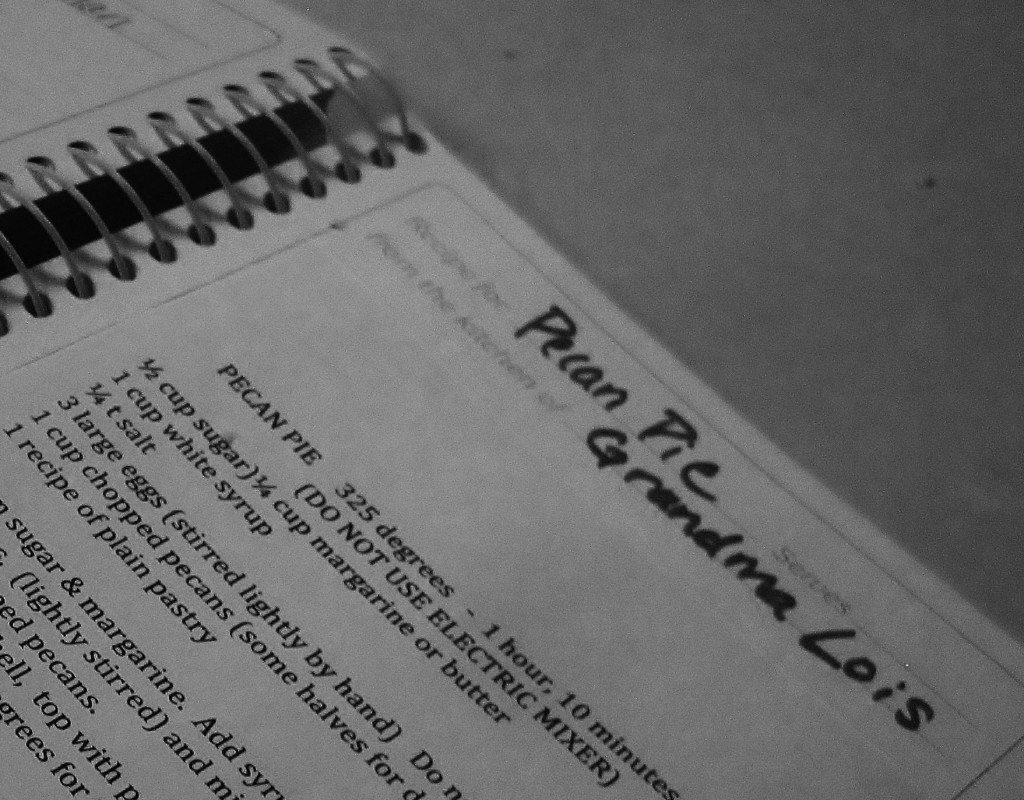 Recipe for Pecan Pie Serves
from the kitchen of Grandma Lois
PECAN PIE 325 degrees - 1 hour, 10 minutes
(DO NOT USE ELECTRIC MIXER)
½ cup sugar) ¼ cup margarine or butter
1 cup white syrup
¼ t salt
3 large eggs (stirred lightly by hand) Do
1 cup chopped pecans (some halves for
1 recipe of plain pastry
sugar & margarine. Add
(lightly stirred) and
pecans.
top with
for